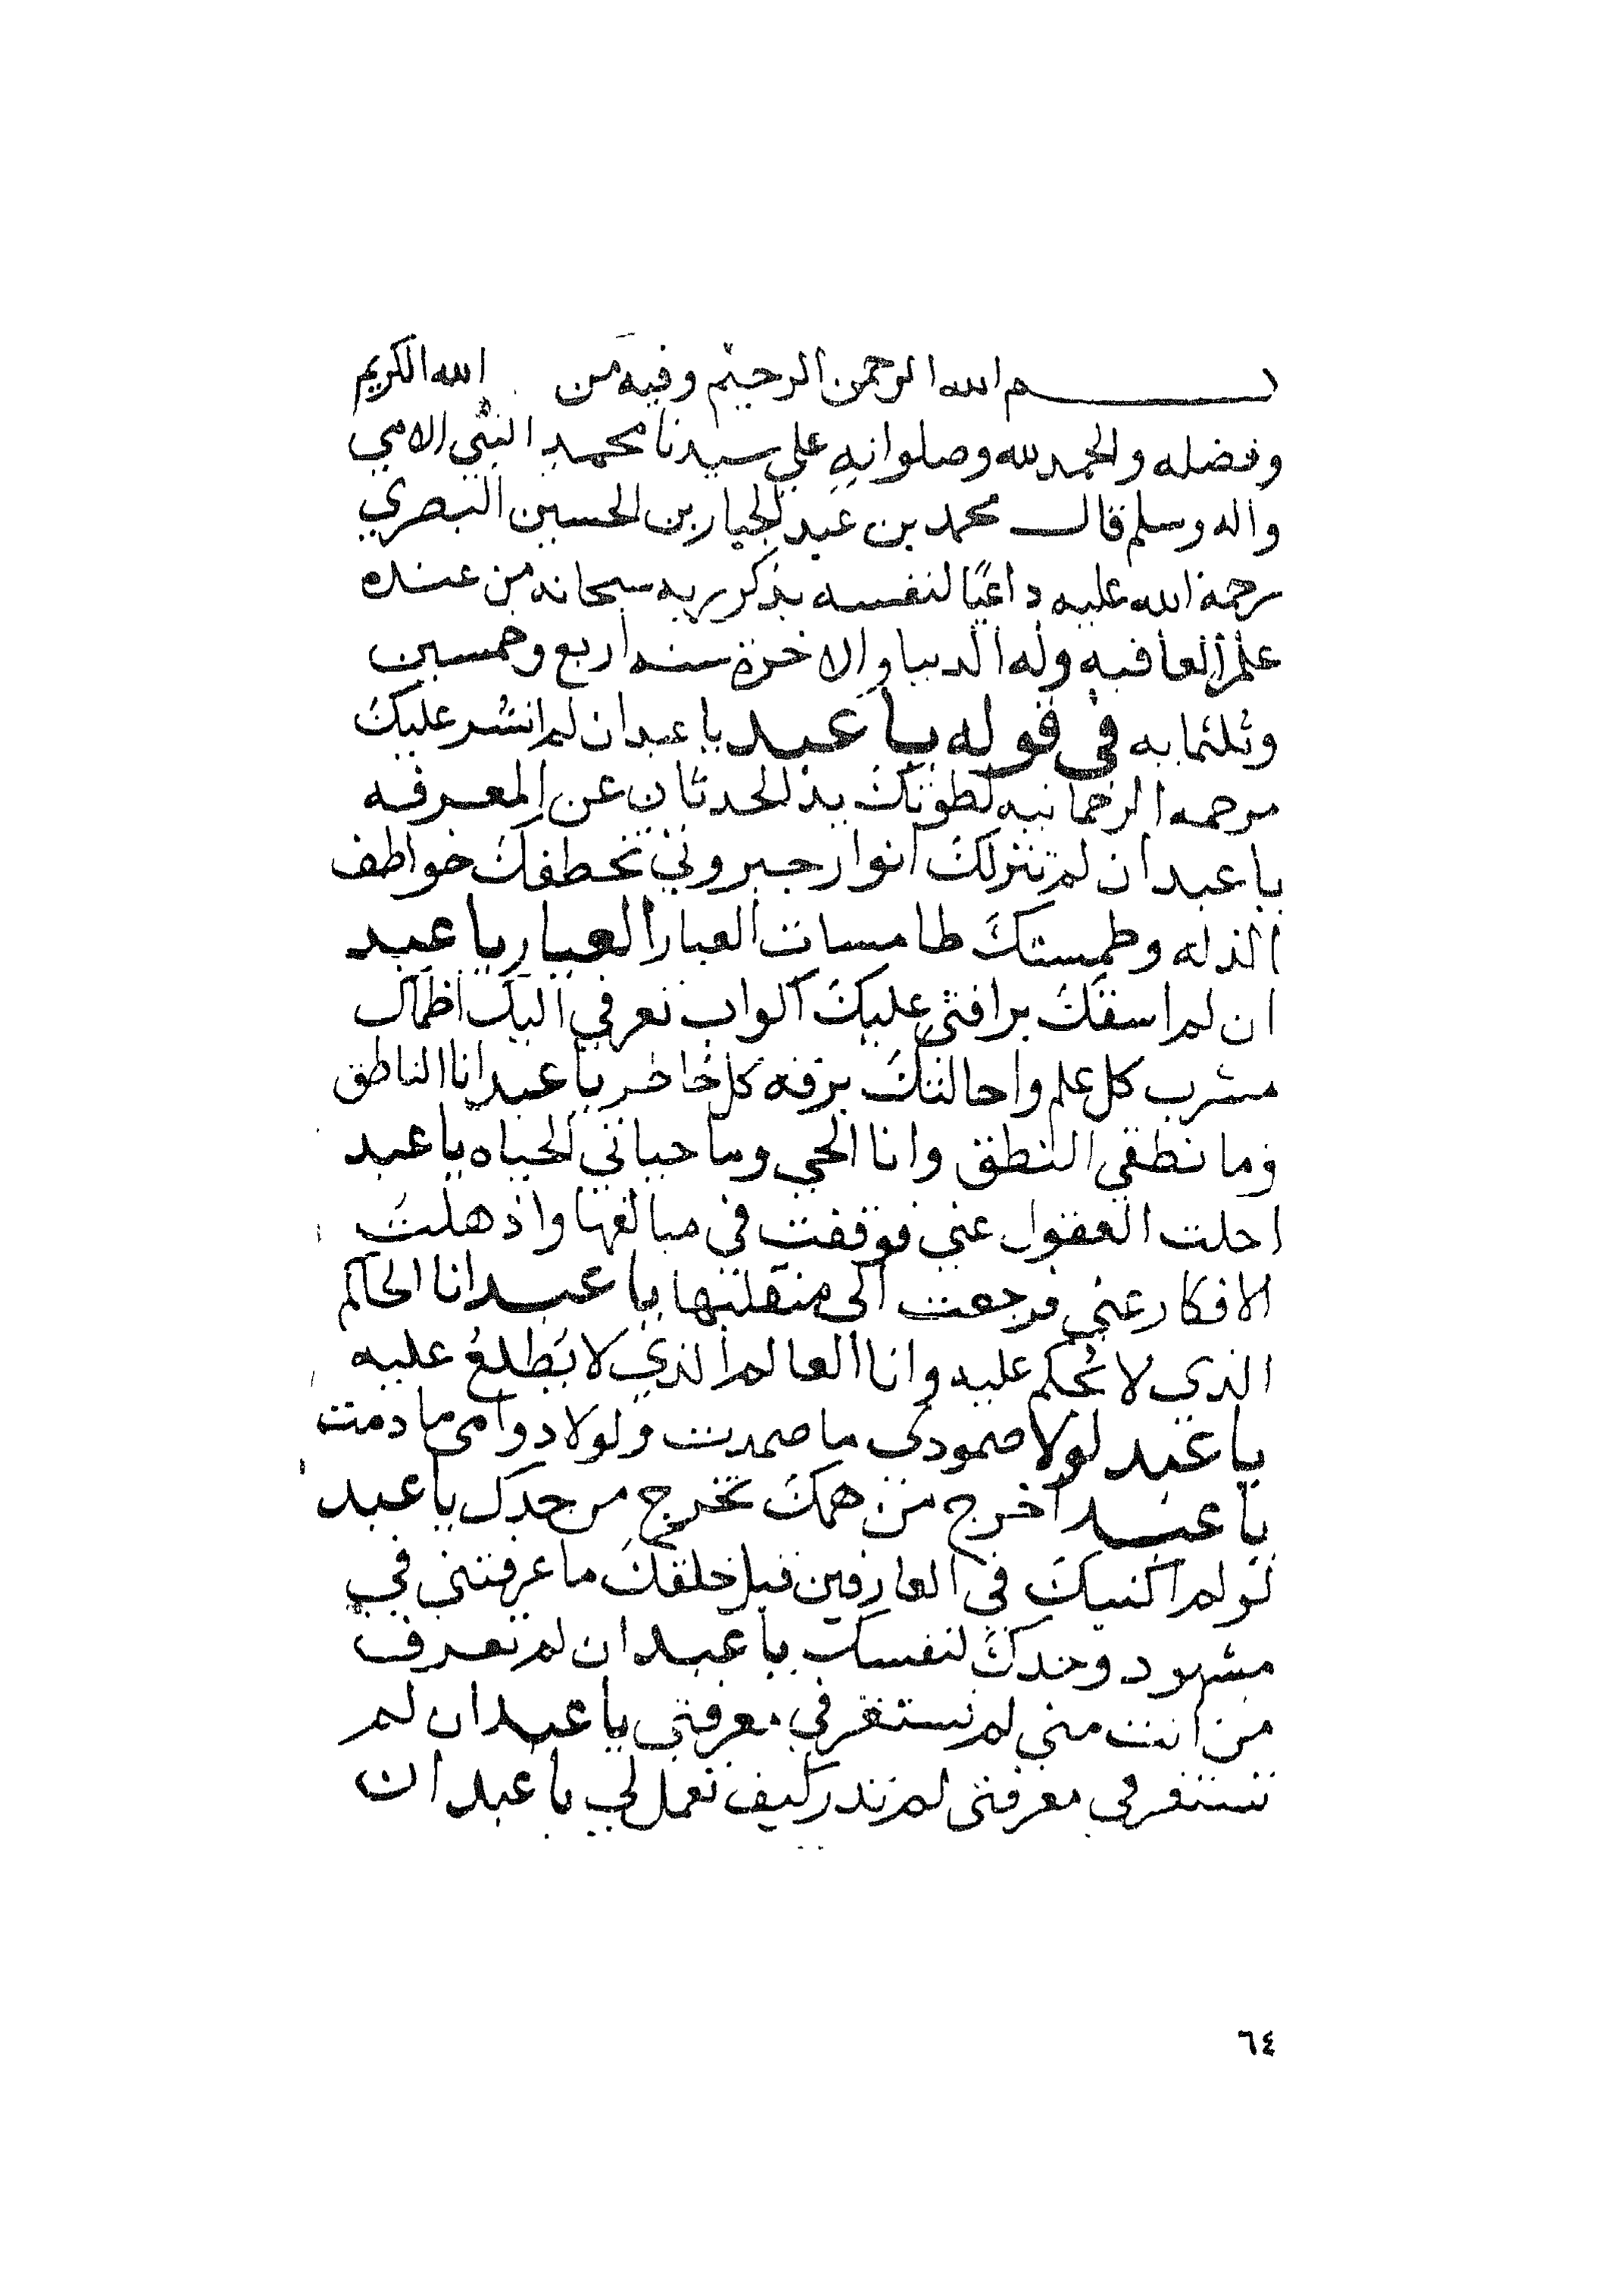 بسم الله الرحمن الرحيم وفيه من الله الكريم
وفضله والحمد لله وصلواته علي سيدنا محمد النبي الامي
واله وسلم قال محمد بن عبد الجبار بن الحسين البصري
رحمة الله عليه داعيًا لنفسه بذكر ربه سبحانه من عنده
علم العافيه وله الدنيا والاخرة سنه اربع وخمسين
وثلثمايه في قوله يا عبد يا عبد ان لم انشر عليك
مرحمه الرحمانيه لطوتك يد الحدثان عن المعرفه
يا عبد ان لم تنزلك انوار جبروتي تخطفك خواطف
الذله وطمستك طامسات الغيار الغيار يا عبد
ان لم اسقك برافتي عليك اكواب تعرفي اليك اظماك
مشرب كل علم واحالتك برقه كل خاطر يا عبد انا الناطق
وما نطقي النطق وانا الحي وما حياتي الحياه يا عبد
احلت العقول عني فوقفت في مبالغها واذهلت
الافكار عني فرجعت الى منقلبها يا عبد انا الحاكم
الذي لا يُحكم عليه وانا العالم الذي لا يَطلعُ عليه
يا عبد لولا صمودي ما صمدت ولولا دوامي ما دمت
يا عبد اخرج من همك تخرج من حدك يا عبد
لو لم اكتبك في العارفين قبل خلقك ما عرفتني في
مشهود وجدك لنفسك يا عبد ان لم تعرف
من انت مني لم تستقر في معرفتي يا عبد ان لم
تستقر في معرفتي لم تدر كيف تعمل لي يا عبد ان
٦٤